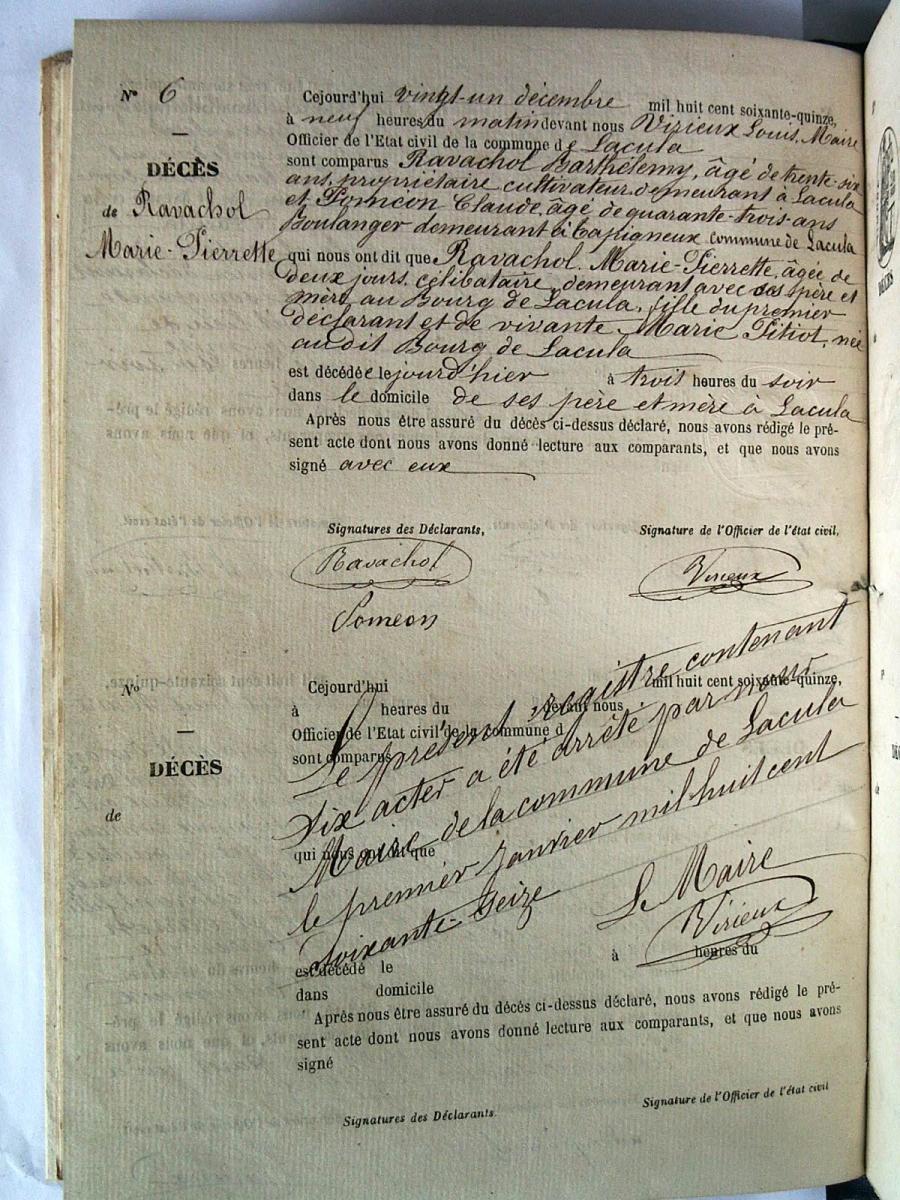 N° 6
DÉCÈS
de Ravachol
Marie-Pierrette
Cejourd'hui vingt-un décembre mil huit cent soixante-quinze,
à neuf heures du matin devant nous Virieux Louis, Maire
Officier de l'Etat civil de la commune de Lacula
sont comparus Ravachol Barthélemy, âgé de trente-six
ans, propriétaire cultivateur, demeurant à Lacula
et Claude, âgé de quarante-trois ans
boulanger demeurant à commune de Lacula
qui nous ont dit que Ravachol Marie-Pierrette, âgée de
deux jours, célibataire, demeurant avec ses père et
mère au Bourg de Lacula, fille du premier
déclarant et de vivante Marie Pitiot, née
audit Bourg de Lacula
est décédée le jourd'hier à trois heures du soir
dans le domicile de ses père et mère à Lacula
Après nous être assuré du décès ci-dessus déclaré, nous avons rédigé le pré-
sent acte dont nous avons donné lecture aux comparants, et que nous avons
signé avec eux
Signatures des Déclarants, Signature de l'Officier de l'état civil,
Ravachol Virieux
N°
DÉCÈS
de
Cejourd'hui mil huit cent soixante-quinze,
à heures du devant nous
Officier de l'Etat civil de la commune d
sont comparus
qui nous ont dit que
Le présent registre contenant
six actes a été arrêté par nous
Maire de la commune de Lacula
le premier Janvier mil huit cent
soixante-seize
Le Maire
Virieux
est décédé le à heures du
dans domicile
Après nous être assuré du décès ci-dessus déclaré, nous avons rédigé le pré-
sent acte dont nous avons donné lecture aux comparants, et que nous avons
signé
Signatures des Déclarants. Signature de l'Officier de l'état civil